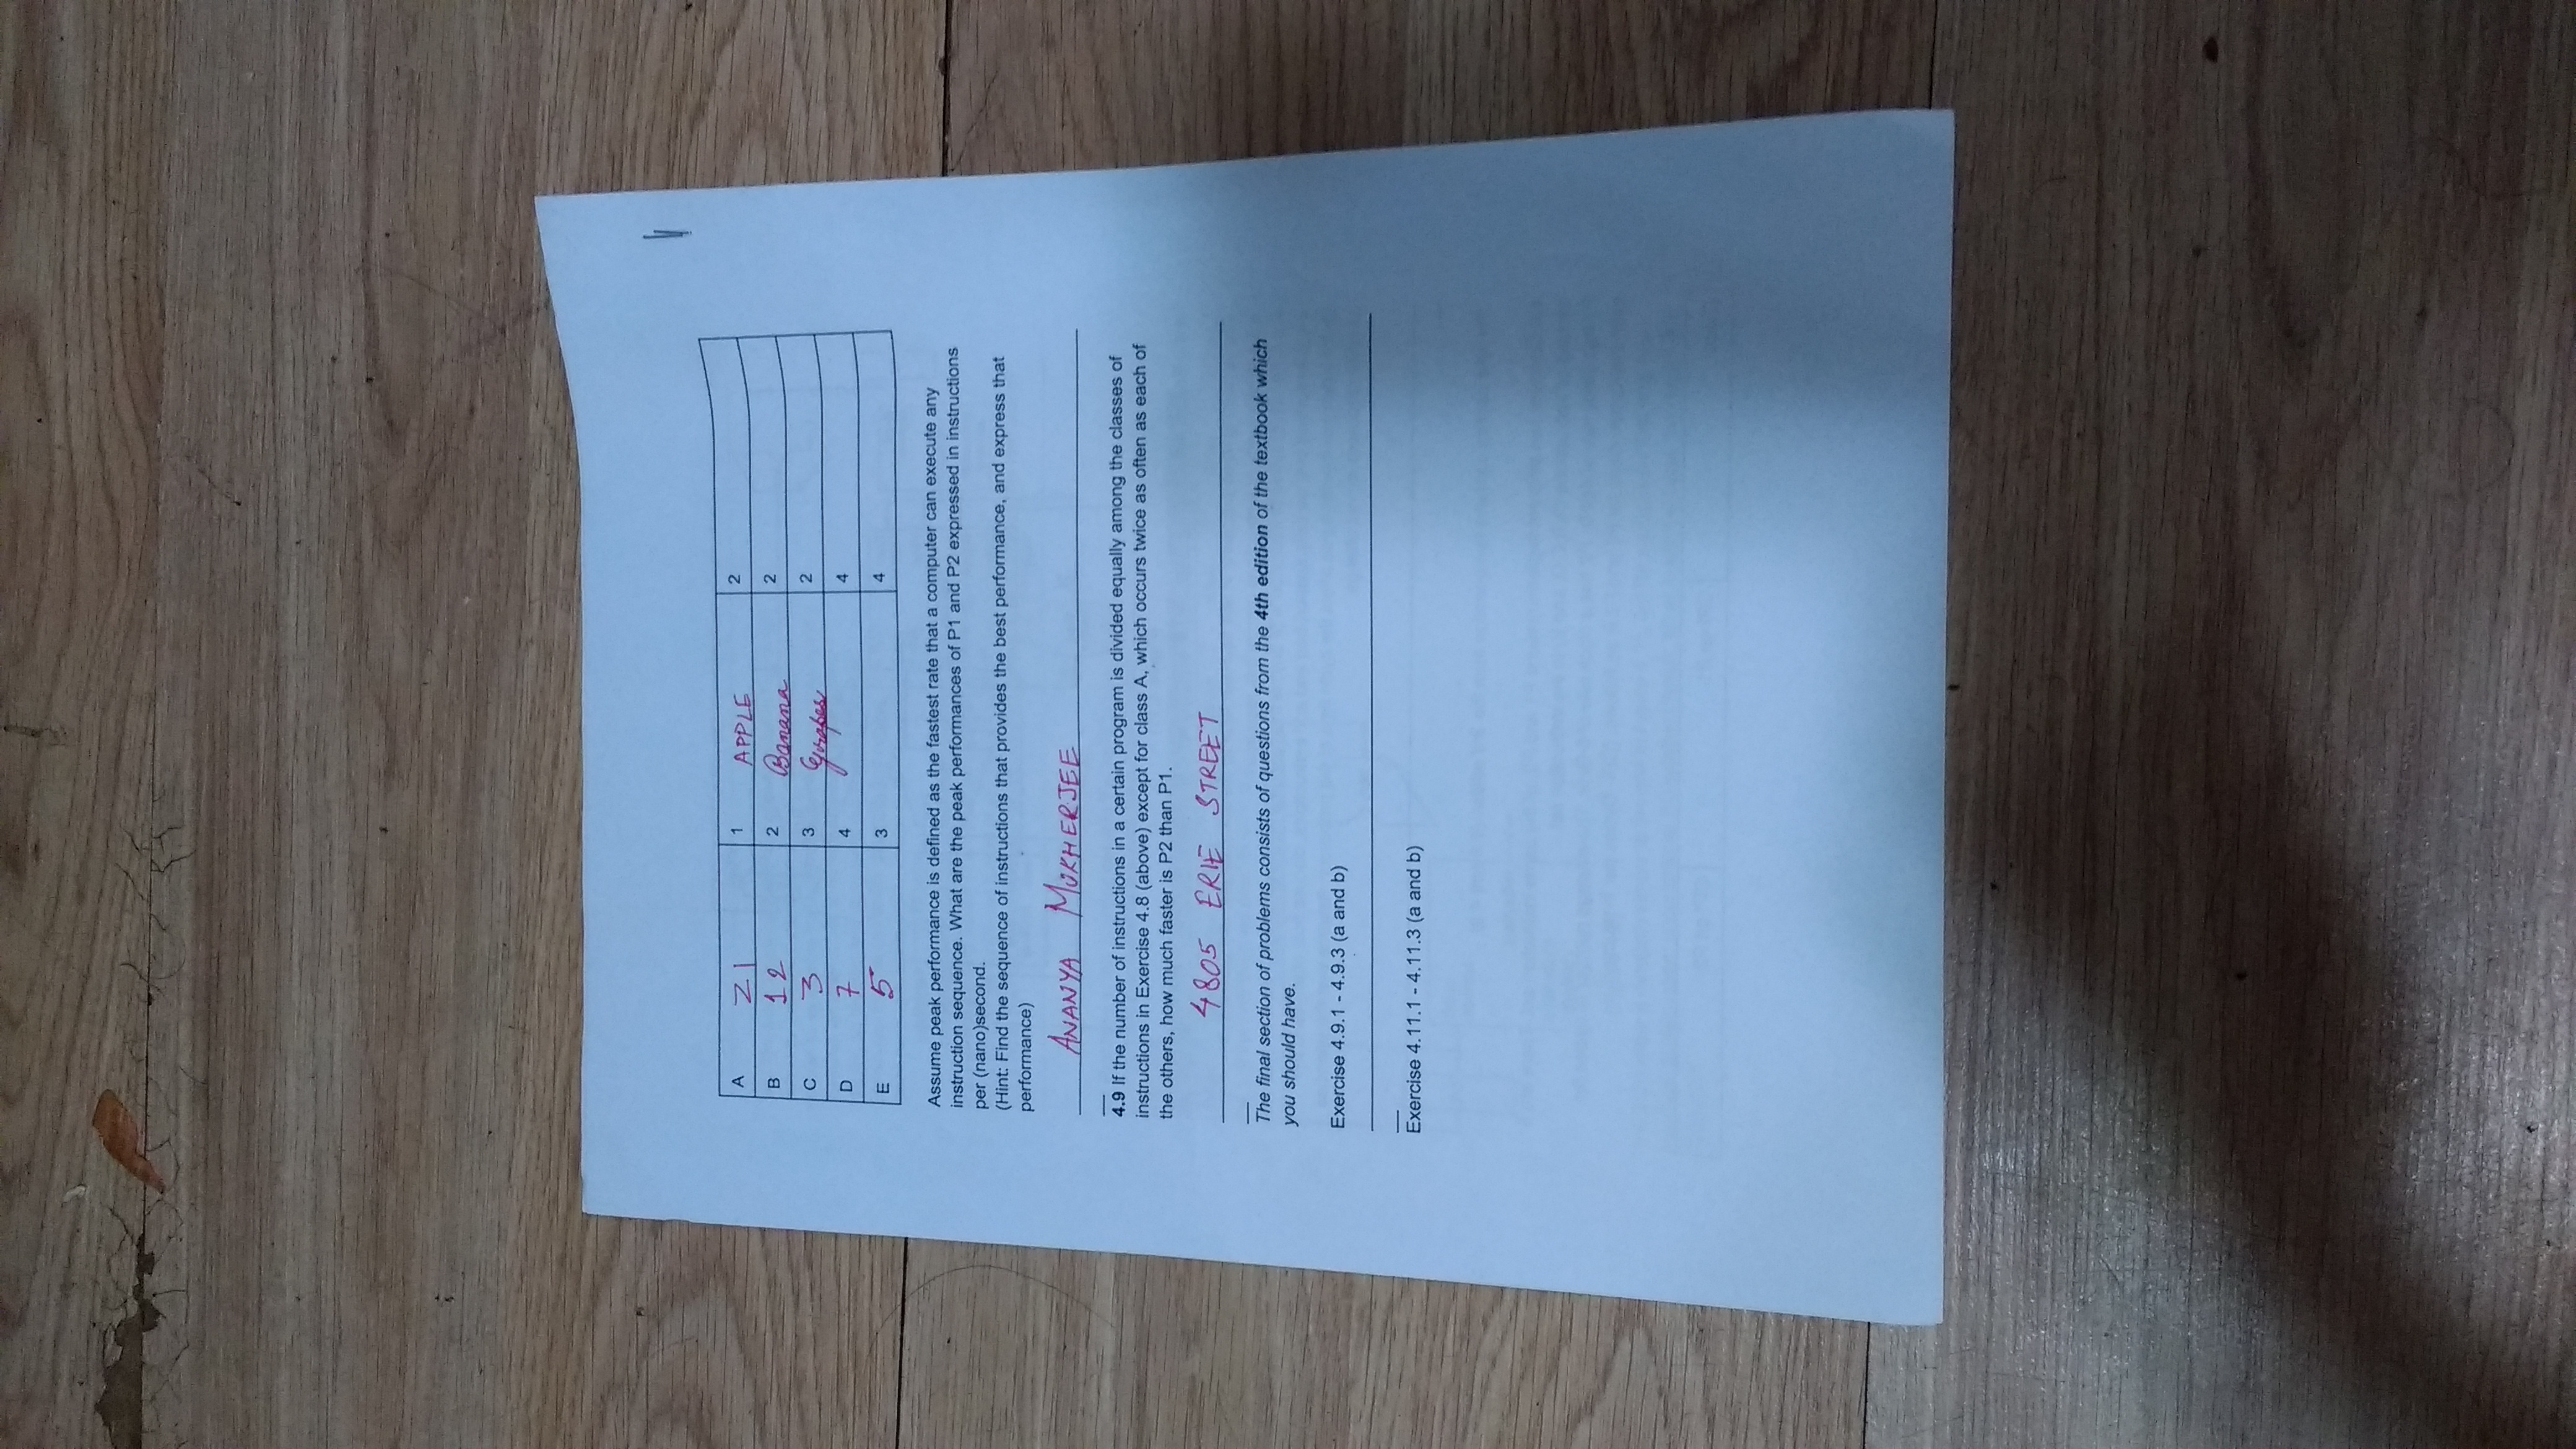 A 21 1 APPLE 2
B 12 2 Banana 2
C 3 3 Grapes 2
D 7 4 4
E 5 3 4
Assume peak performance is defined as the fastest rate that a computer can execute any
instruction sequence. What are the peak performances of P1 and P2 expressed in instructions
per (nano)second.
(Hint: Find the sequence of instructions that provides the best performance, and express that
performance)
ANANYA MUKHERJEE
4.9 If the number of instructions in a certain program is divided equally among the classes of
instructions in Exercise 4.8 (above) except for class A, which occurs twice as often as each of
the others, how much faster is P2 than P1.
4805 ERIE STREET
The final section of problems consists of questions from the 4th edition of the textbook which
you should have.
Exercise 4.9.1 - 4.9.3 (a and b)
Exercise 4.11.1 - 4.11.3 (a and b)